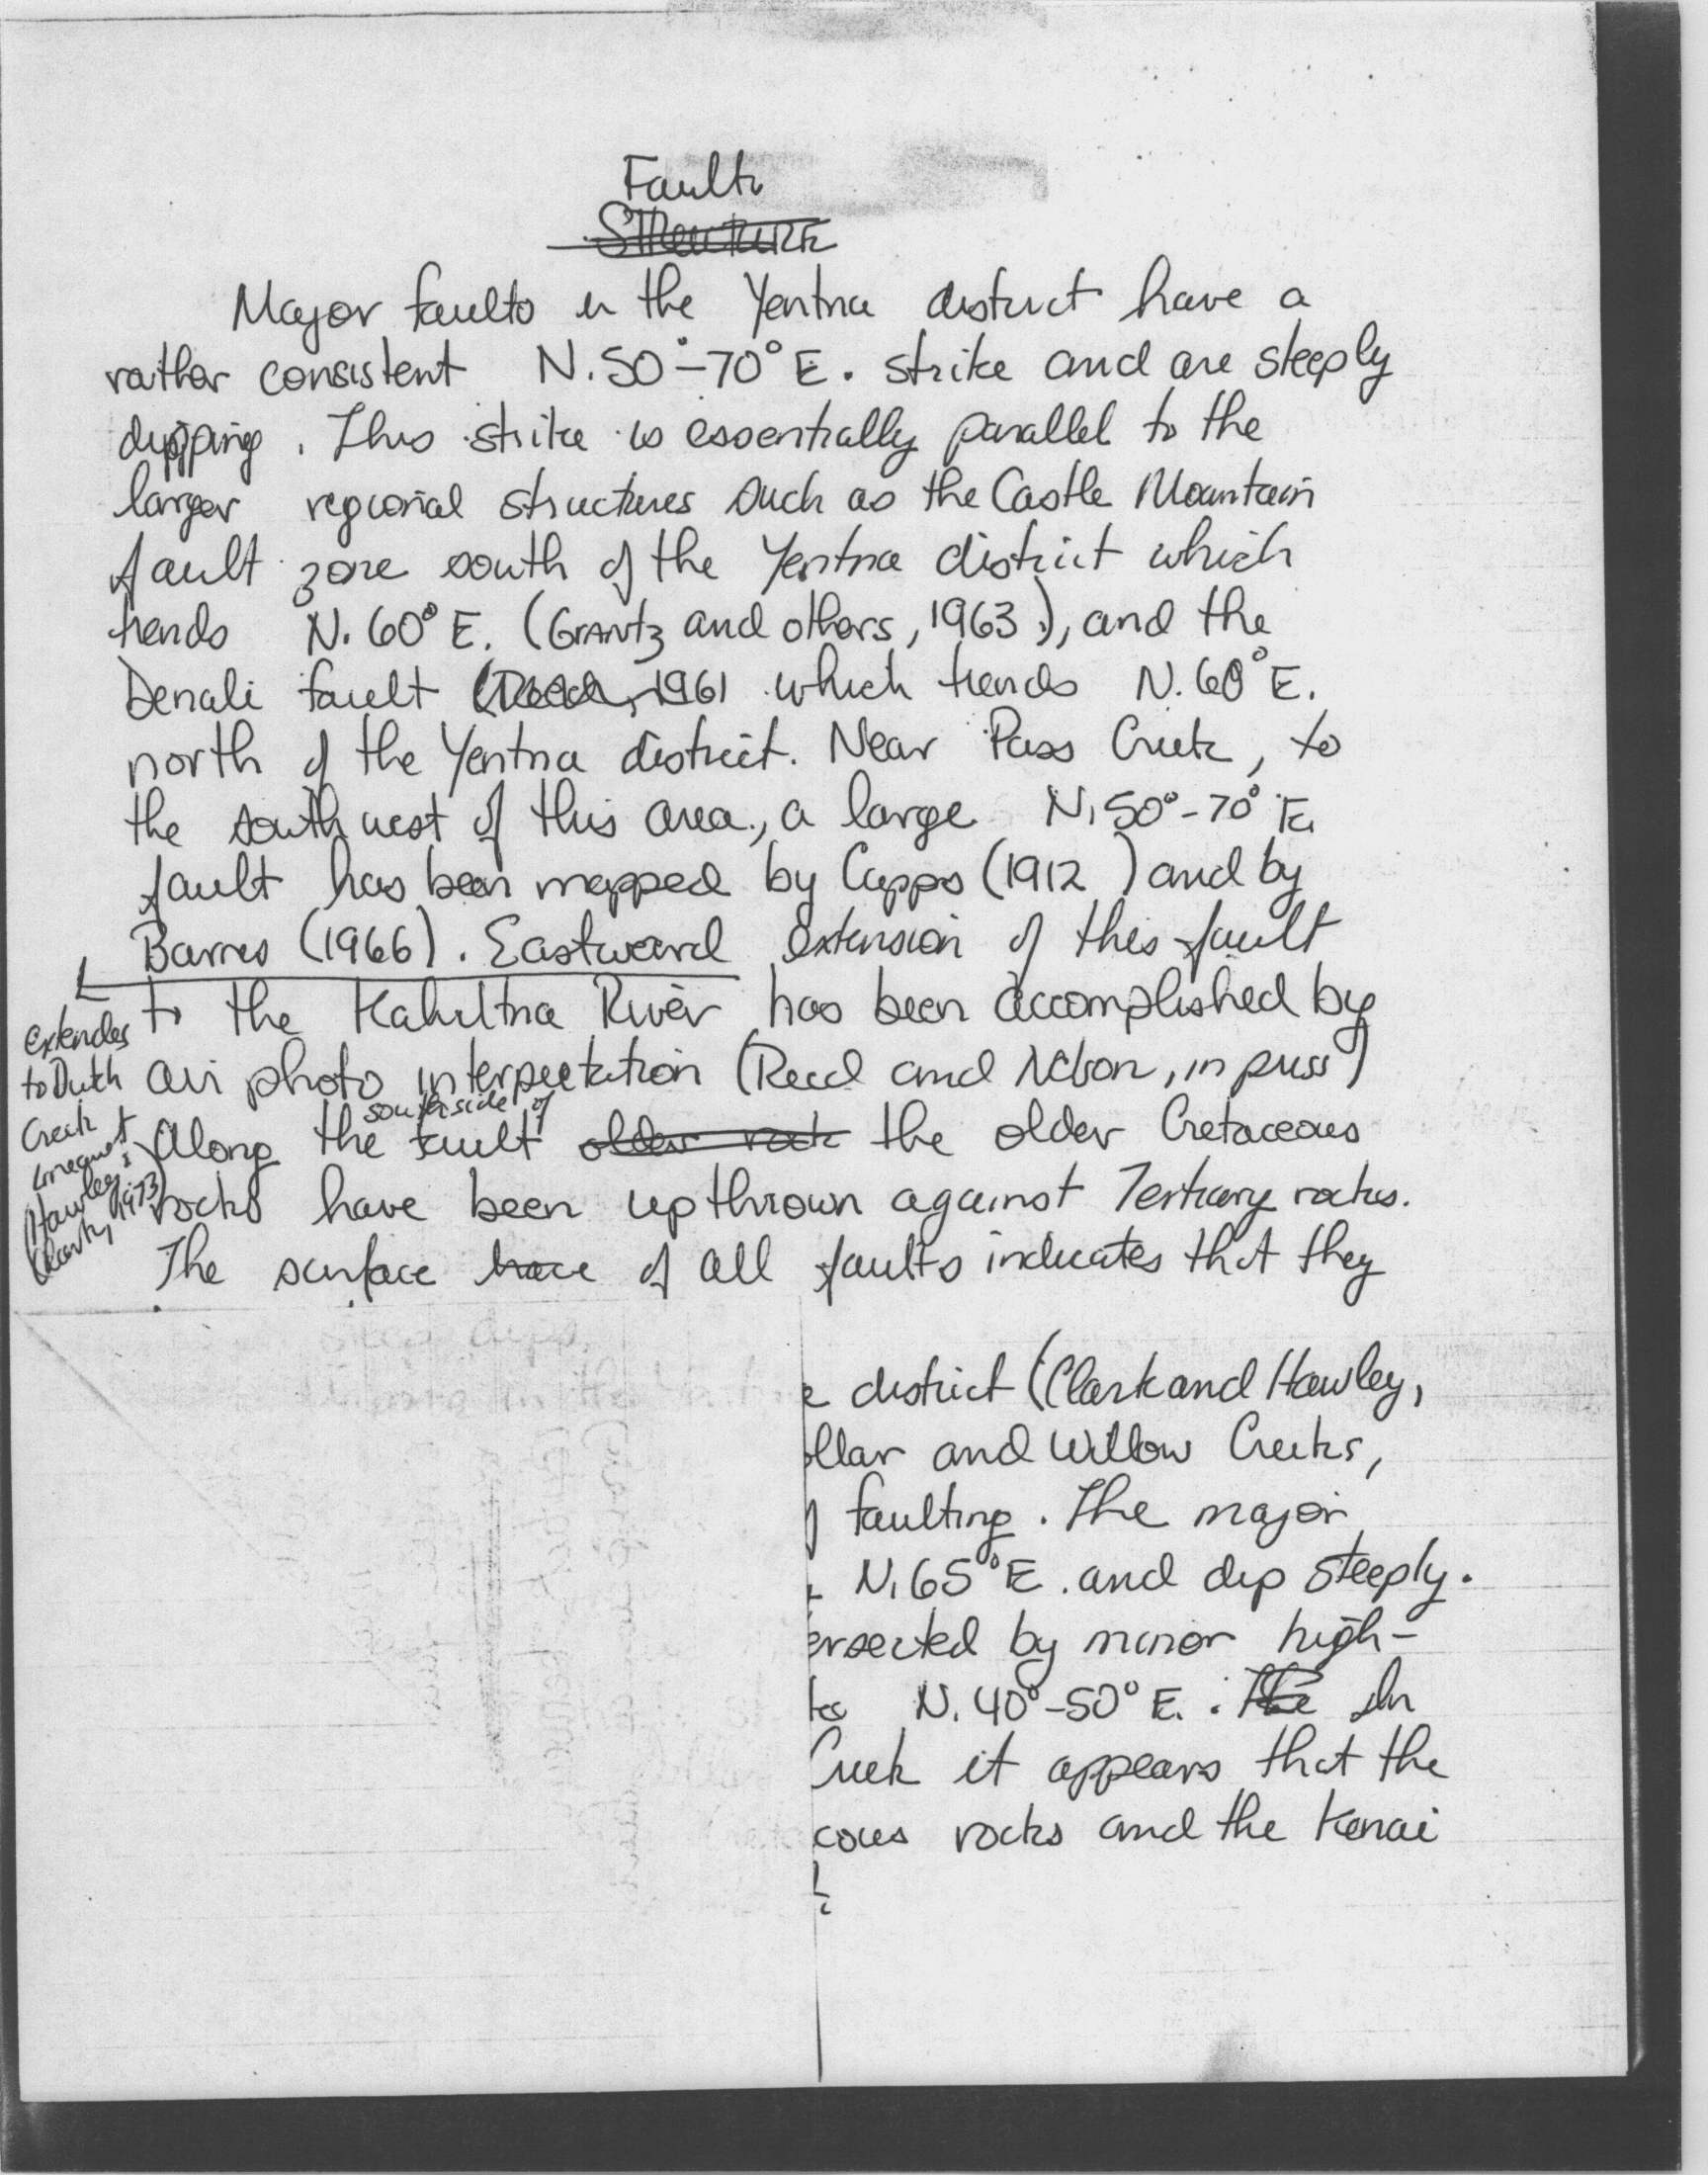 Faults
Structure
Major faults in the Yentna district have a
rather consistent N. 50°-70° E. strike and are steeply
dipping. This strike is essentially parallel to the
larger regional structures such as the Castle Mountain
fault zone south of the Yentna district which
trends N. 60° E. (Grantz and others, 1963), and the
Denali fault 1961 which trends N. 60° E.
north of the Yentna district. Near Pass Creek, to
the southwest of this area, a large N. 50°-70° E.
fault has been mapped by Capps (1912 ) and by
Barnes (1966). Eastward extension of this fault
to the Kahiltna River has been accomplished by
air photo interpretation (Reed and Nelson, in press)
south side of
Along the fault older rock the older Cretaceous
rocks have been upthrown against Tertiary rocks.
The surface trace of all faults indicates that they
extends
to Dutch
Creek
(Hawley &
Clark, 1973)
e district (Clark and Hawley,
ollar and Willow Creeks,
faulting. The major
N. 65° E. and dip steeply.
ersected by minor high-
N. 40°-50° E. . The In
Creek it appears that the
ceous rocks and the Kenai